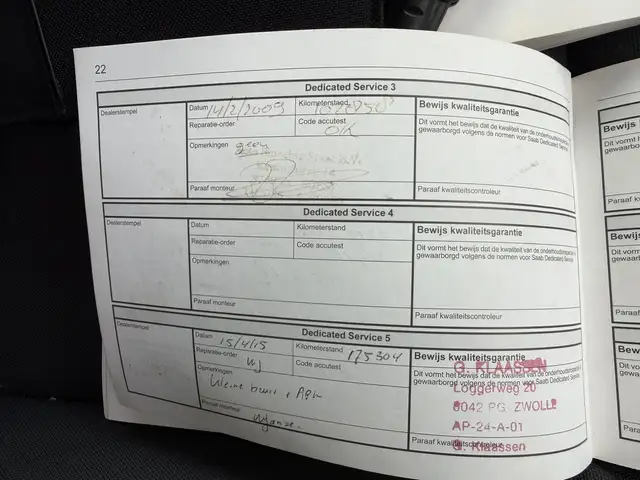 22
Dedicated Service 3
Dealerstempel
Datum 14/2/2009
Kilometerstand
Bewijs kwaliteitsgarantie
Reparatie-order
Code accutest OK
Dit vormt het bewijs dat de kwaliteit van de onderhoudsinspectie
gewaarborgd volgens de normen voor Saab Dedicated Service.
Opmerkingen geen
Paraaf monteur
Paraaf kwaliteitscontroleur
Dedicated Service 4
Dealerstempel
Datum
Kilometerstand
Bewijs kwaliteitsgarantie
Reparatie-order
Code accutest
Dit vormt het bewijs dat de kwaliteit van de onderhoudsinspectie
gewaarborgd volgens de normen voor Saab Dedicated Service.
Opmerkingen
Paraaf monteur
Paraaf kwaliteitscontroleur
Dedicated Service 5
Dealerstempel
Datum 15/4/15
Kilometerstand 175304
Bewijs kwaliteitsgarantie
Reparatie-order
Code accutest
Dit vormt het bewijs dat de kwaliteit van de onderhoudsinspectie
gewaarborgd volgens de normen voor Saab Dedicated Service.
Opmerkingen
Kleine beurt + APK
Paraaf monteur
Paraaf kwaliteitscontroleur
G. KLAASSEN
Loggerweg 20
8042 PG ZWOLLE
AP-24-A-01
G. Klaassen
Bewijs
Dit vormt h
gewaarborg
Paraaf k
Bewijs
Dit vormt
gewaarb
Paraaf
Bewi
Dit vor
gewaa
Para